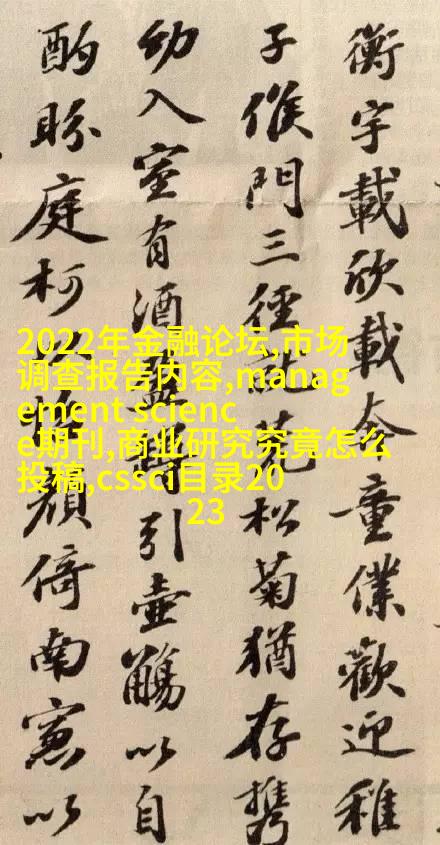 衡宇載欣載奔童僕歡迎稚
子候門三徑就荒松菊猶存携
幼入室有酒盈樽引壺觴以自
酌眄庭柯以怡顏倚南窻以
2022年金融论坛,市场
调查报告内容,manag
ement scienc
e期刊,商业研究究竟怎么
投稿,cssci目录20
23